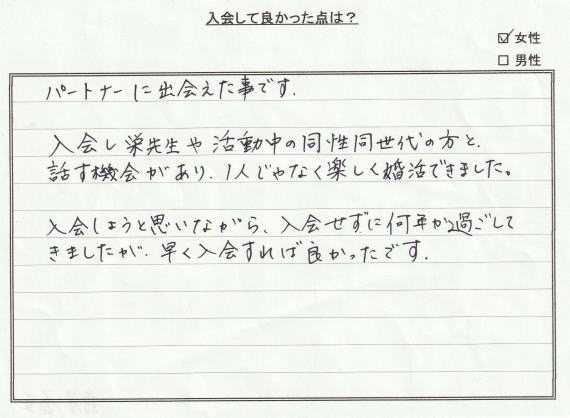 入会して良かった点は？
☑ 女性
☐ 男性
パートナーに出会えた事です.
入会し栄先生や活動中の同性同世代の方と、
話す機会があり、1人じゃなく楽しく婚活できました。
入会しようと思いながら、入会せずに何年か過ごして
きましたが、早く入会すれば良かったです.